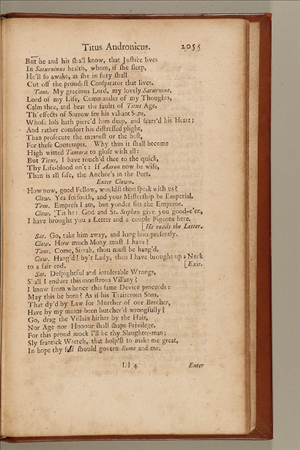 Titus Andronicus. 2055
But he and his shall know, that Justice lives
In Saturninus health, whom, if she sleep,
He'll so awake, as she in fury shall
Cut off the proud'st Conspirator that lives.
Tam. My gracious Lord, my lovely Saturnine,
Lord of my Life, Commander of my Thoughts,
Calm thee, and bear the faults of Titus Age,
Th' effects of Sorrow for his valiant Sons,
Whose loss hath pierc'd him deep, and scarr'd his Heart:
And rather comfort his distressed plight,
Than prosecute the meanest or the best,
For these Contempts. Why thus it shall become
High witted Tamora to glose with all:
But Titus, I have touch'd thee to the quick,
Thy Life-blood on't: If Aaron now be wise,
Then is all safe, the Anchor's in the Port.
Enter Clown.
How now, good Fellow, wouldst thou speak with us?
Clow. Yea forsooth, and your Mistership be Emperial.
Tam. Empress I am, but yonder sits the Emperor.
Clow. 'Tis he: God and St. Stephen give you good-e'en,
I have brought you a Letter and a couple Pigeons here.
[He reads the Letter.
Sat. Go, take him away, and hang him presently.
Clow. How much Mony must I have?
Tam. Come, Sirrah, thou must be hang'd.
Clow. Hang'd! by'r Lady, then I have brought up a Neck
to a fair end. [Exit.
Sat. Despightful and intolerable Wrongs,
Shall I endure this monstrous Villany?
I know from whence this same Device proceeds:
May this be born? As if his Traiterous Sons,
That dy'd by Law for Murther of our Brother,
Have by my means been butcher'd wrongfully?
Go, drag the Villain hither by the Hair,
Nor Age nor Honour shall shape Privilege.
For this proud mock I'll be thy Slaughter-man;
Sly frantick Wretch, that holp'st to make me great,
In hope thy self should govern Rome and me.
Ll 4 Enter